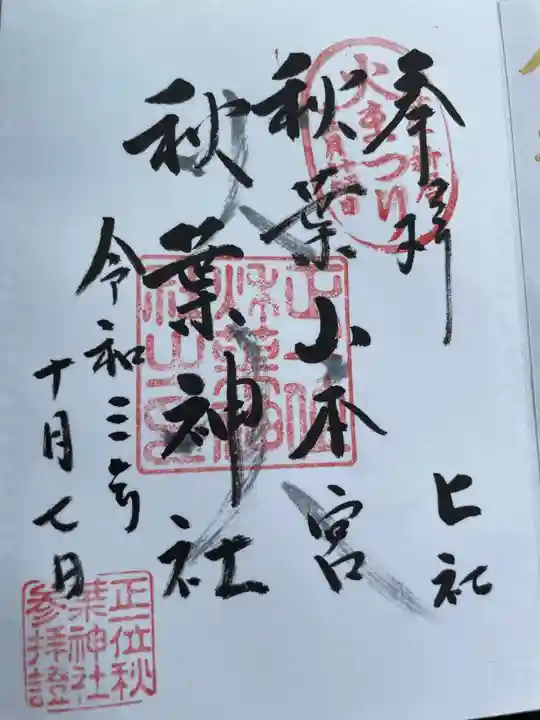 奉拝
上社
秋葉山本宮
秋葉神社
令和三年
十月七日
火まつり
正一位秋
葉神社
参拝證